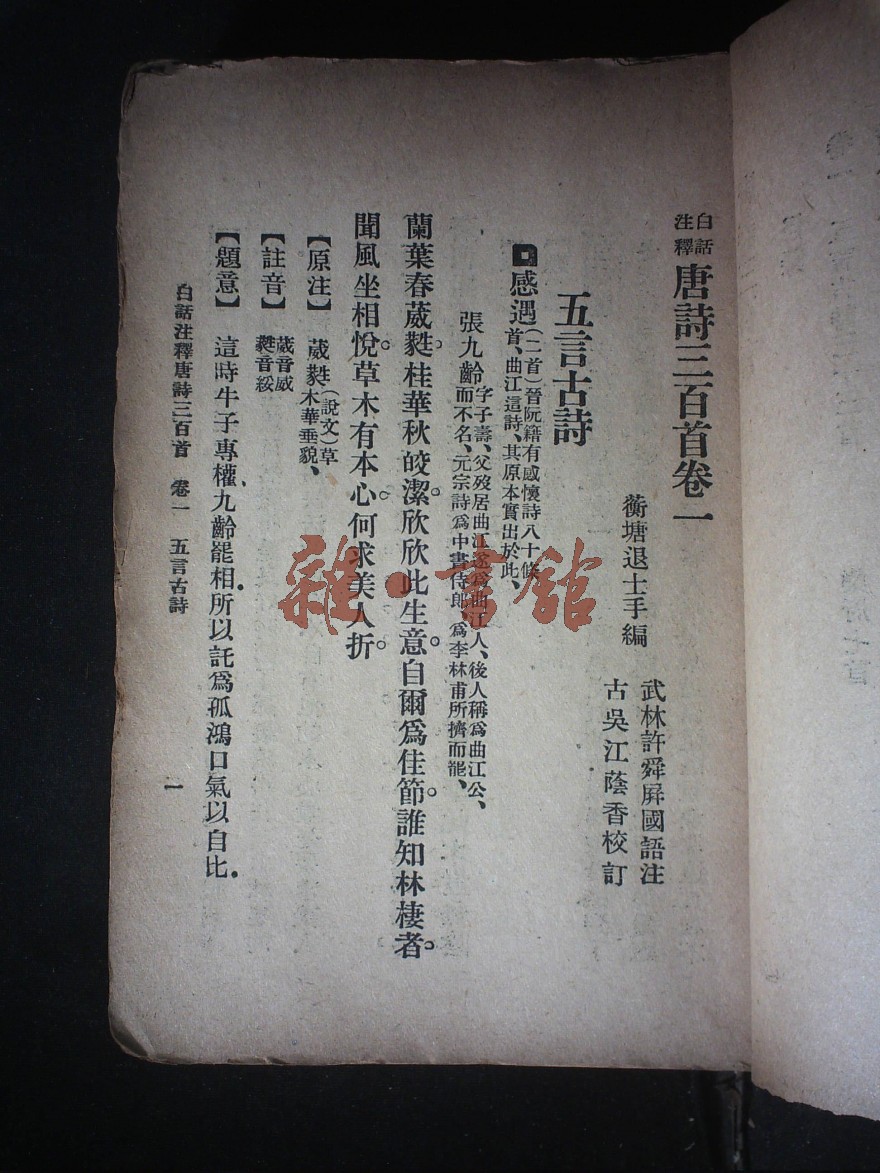 白話注釋唐詩三百首卷一
蘅塘退士手編
武林許舜屛國語注
古吳江蔭香校訂
五言古詩
感遇(二首)晉阮籍有感懷詩八十餘
首、曲江這詩、其原本實出於此、
張九齡字子壽、父歿居曲江遂爲曲江人、後人稱爲曲江公、
而不名、元宗詩爲中書侍郎、爲李林甫所擠而罷、
蘭葉春葳蕤。桂華秋皎潔。欣欣此生意。自爾爲佳節。誰知林棲者。
聞風坐相悅。草木有本心。何求美人折。
【原注】葳蕤(說文)草
木華垂貌、
【註音】葳音威
蕤音綏
【題意】這時牛子專權、九齡罷相.所以託爲孤鴻口氣以自比.
白話注釋唐詩三百首 卷一 五言古詩 一
雜·書館